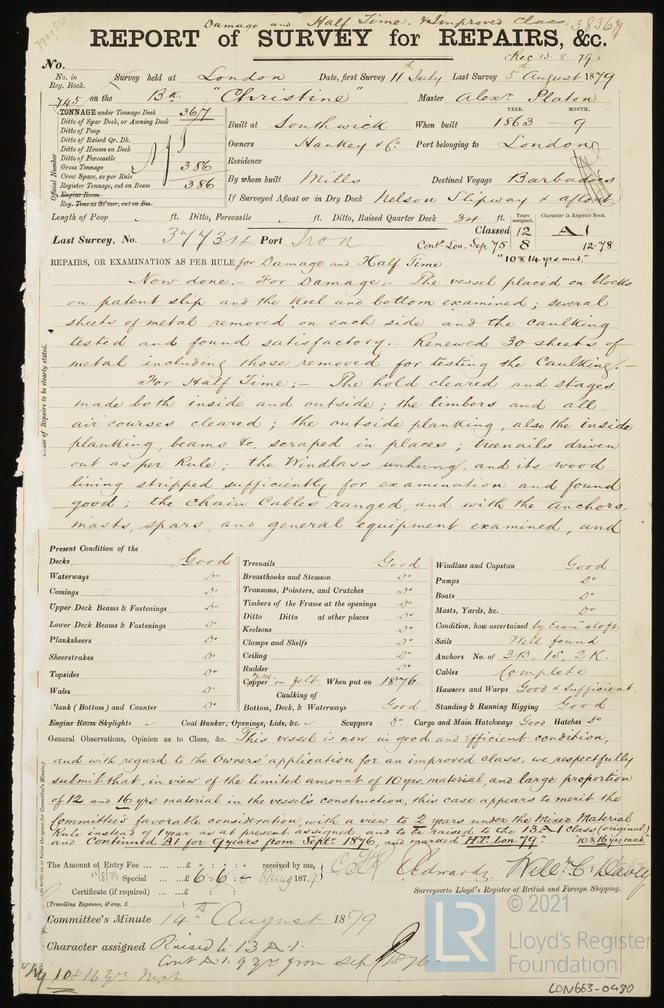 Damage and Half Time. & Improved Class. 38364
REPORT of SURVEY for REPAIRS, &c.
Rec 13.8.79
No.
No. in Reg. Book. Survey held at London Date, first Survey 11th July Last Survey 5th August 1879
745 on the Bk. "Christine" Master Alexr. Platon
TONNAGE under Tonnage Deck 367
Ditto of Spar Deck, or Awning Deck
Ditto of Poop
Ditto of Raised Qr. Dk.
Ditto of Houses on Deck
Ditto of Forecastle
Gross Tonnage 386
Crew Space, as per Rule
Register Tonnage, cut on Beam 386
Engine Room
Reg. Tons as St'mr, cut on Bm.
Official Number
YEAR. MONTH.
Built at Southwick When built 1863 9
Owners Hankey & Co. Port belonging to London
Residence
By whom built Mills Destined Voyage Barbadoes
If Surveyed Afloat or in Dry Dock Nelson Slipway & afloat
Length of Poop ft. Ditto, Forecastle ft. Ditto, Raised Quarter Deck 34 ft.
Years assigned. Character in Register Book.
Last Survey, No. 37734 Port Classed 12 A1
Cont. Lon. Sep. 75 8 12.78
"10 & 14 yrs. mat."
REPAIRS, OR EXAMINATION AS PER RULE for Damage and Half Time
Now done.- For Damage;- The vessel placed on blocks
on patent slip and the Keel and bottom examined; several
sheets of metal removed on each side and the caulking
tested and found satisfactory.- Renewed 30 sheets of
metal including those removed for testing the Caulking.-
For Half Time;- The hold cleared and stages
made both inside and outside; the limbers and all
air courses cleared; the outside planking, also the inside
planking, beams &c. scraped in places; treenails driven
out as per Rule; the Windlass unhung, and its wood
lining stripped sufficiently for examination and found
good; the chain Cables ranged, and with the anchors,
masts, spars, and general equipment examined, and
Cause of Repairs to be clearly stated.
Present Condition of the
Decks Good
Waterways Do
Comings Do
Upper Deck Beams & Fastenings Do
Lower Deck Beams & Fastenings Do
Planksheers Do
Sheerstrakes Do
Topsides Do
Wales Do
Plank (Bottom) and Counter Do
Treenails Good
Breasthooks and Stemson Do
Transoms, Pointers, and Crutches Do
Timbers of the Frame at the openings Do
Ditto Ditto at other places Do
Keelsons Do
Clamps and Shelfs Do
Ceiling Do
Rudder Do
Copper on felt When put on 1876
Caulking of
Bottom, Deck, & Waterways Good
Windlass and Capstan Good
Pumps Do
Boats Do
Masts, Yards, &c. Do
Condition, how ascertained by Exam aloft
Sails Well found
Anchors No. of 3B, 1S, 2K.
Cables Complete
Hawsers and Warps Good & Sufficient
Standing & Running Rigging Good
Engine Room Skylights Coal Bunker, Openings, Lids, &c. Scuppers Do Cargo and Main Hatchways Good Hatches do
General Observations, Opinion as to Class, &c. This vessel is now in good and efficient condition,
and with regard to the Owners' application for an improved class, we respectfully
submit that, in view of the limited amount of 10 yrs. material, and large proportion
of 12 and 16 yrs material in the vessel's construction, this case appears to merit the
Committee's favorable consideration, with a view to 2 years under the Mixed Material
Rule instead of 1 year as at present assigned, and to be raised to the 13 A1 class (original)
and Continued A1 for 9 years from Septr. 1876, and marked "H.T. Lon. 79" "10 & 16 yrs. mat."
The Amount of Entry Fee £ : : received by me,
Special £ 6 : 6 : -
Certificate (if required)
(Travelling Expenses, if any, £ )
Surveyors to Lloyd's Register of British and Foreign Shipping.
Committee's Minute 14th August 1879
Character assigned Raised to 13 A1.
Cont A1. 9 yrs from Sep 1876
10 & 16 yrs mat
LR
© 2021
Lloyd's Register
Foundation
LON663-0480